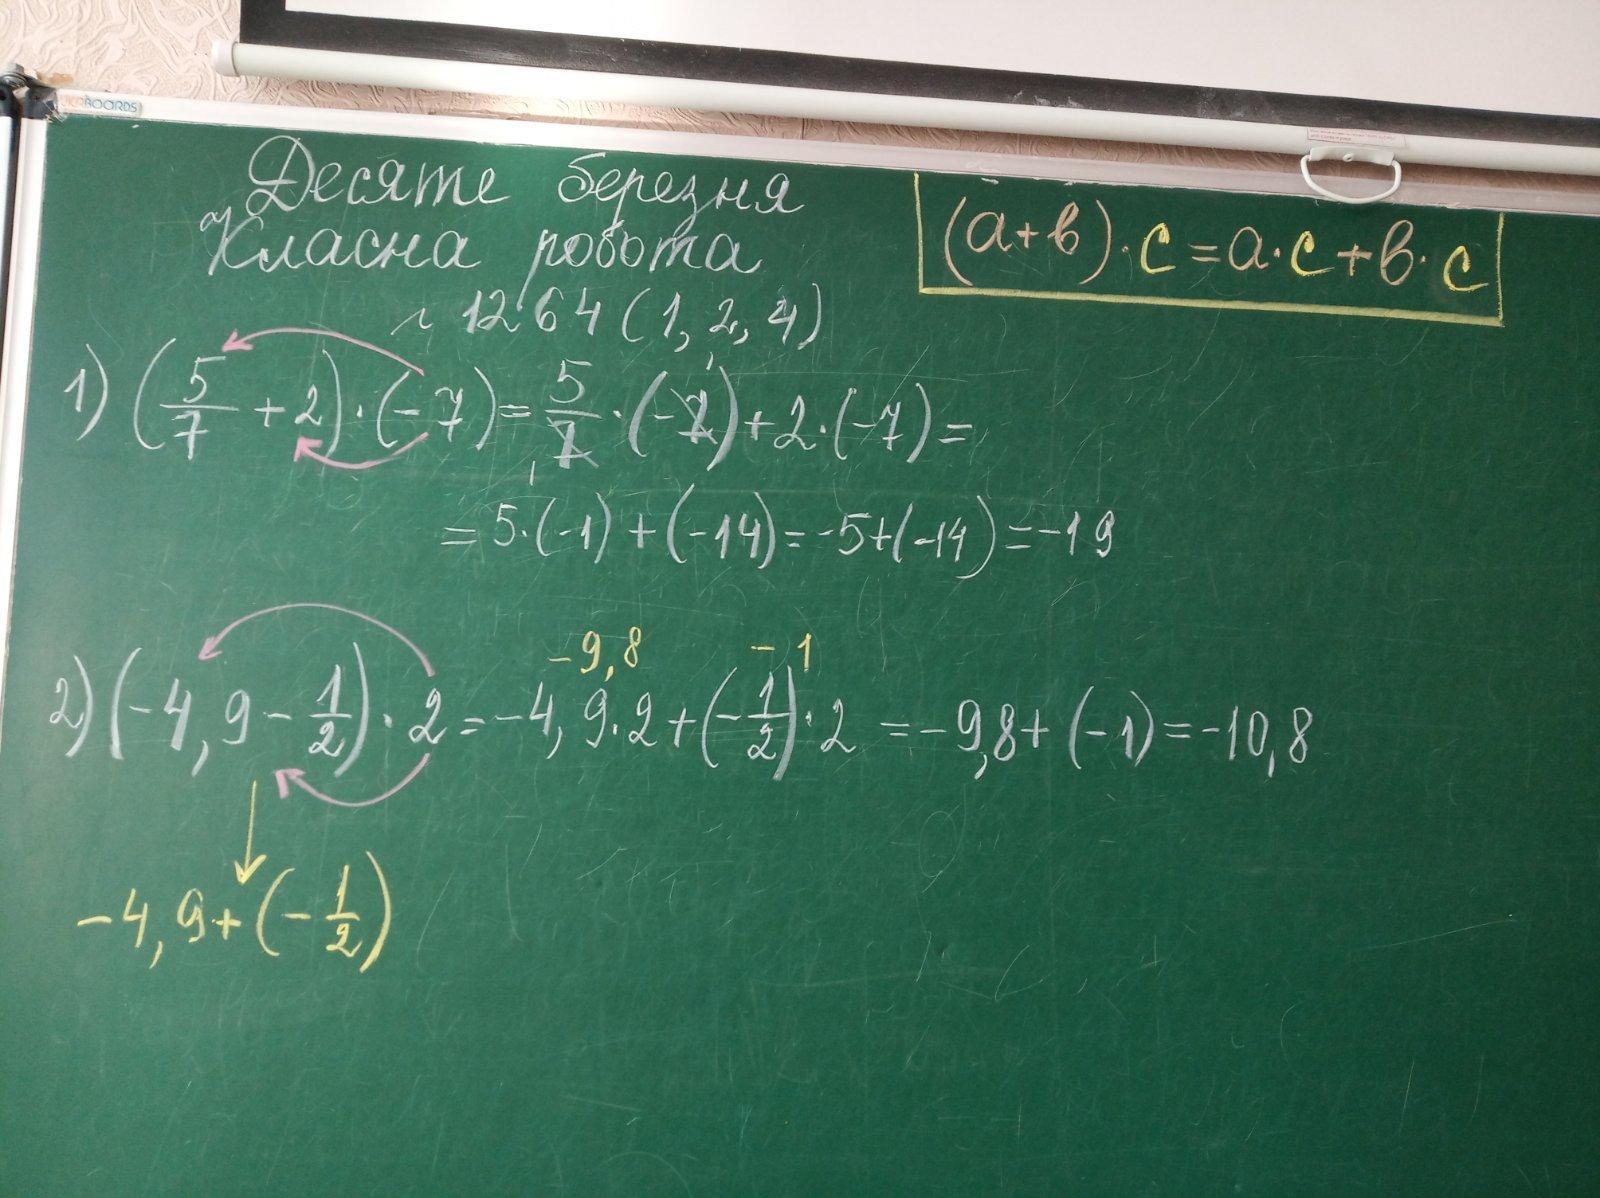 UKRBOARDS
Десяте березня
Класна робота
(а+в)·с=а·с+в·с
1264(1, 2, 4)
1) (5/7 + 2)·(-7) = 5/7·(-7)+2·(-7) =
= 5·(-1) + (-14) = -5+(-14) = -19
-9,8 -1
2) (-4,9 - 1/2)·2 = -4,9·2+(-1/2)·2 = -9,8+(-1) = -10,8
-4,9+(-1/2)